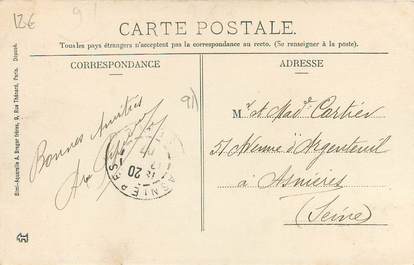 12€
91
CARTE POSTALE.
Tous les pays étrangers n'acceptent pas la correspondance au recto. (Se renseigner à la poste).
CORRESPONDANCE
ADRESSE
91
Bonnes Amitiés
Mr et Made Cartier
51 Avenue d'Argenteuil
à Asnières
(Seine)
ASNIERES
20
Simi-Aquarelle A. Breger frères, 9, Rue Thénard, Paris. Déposé.